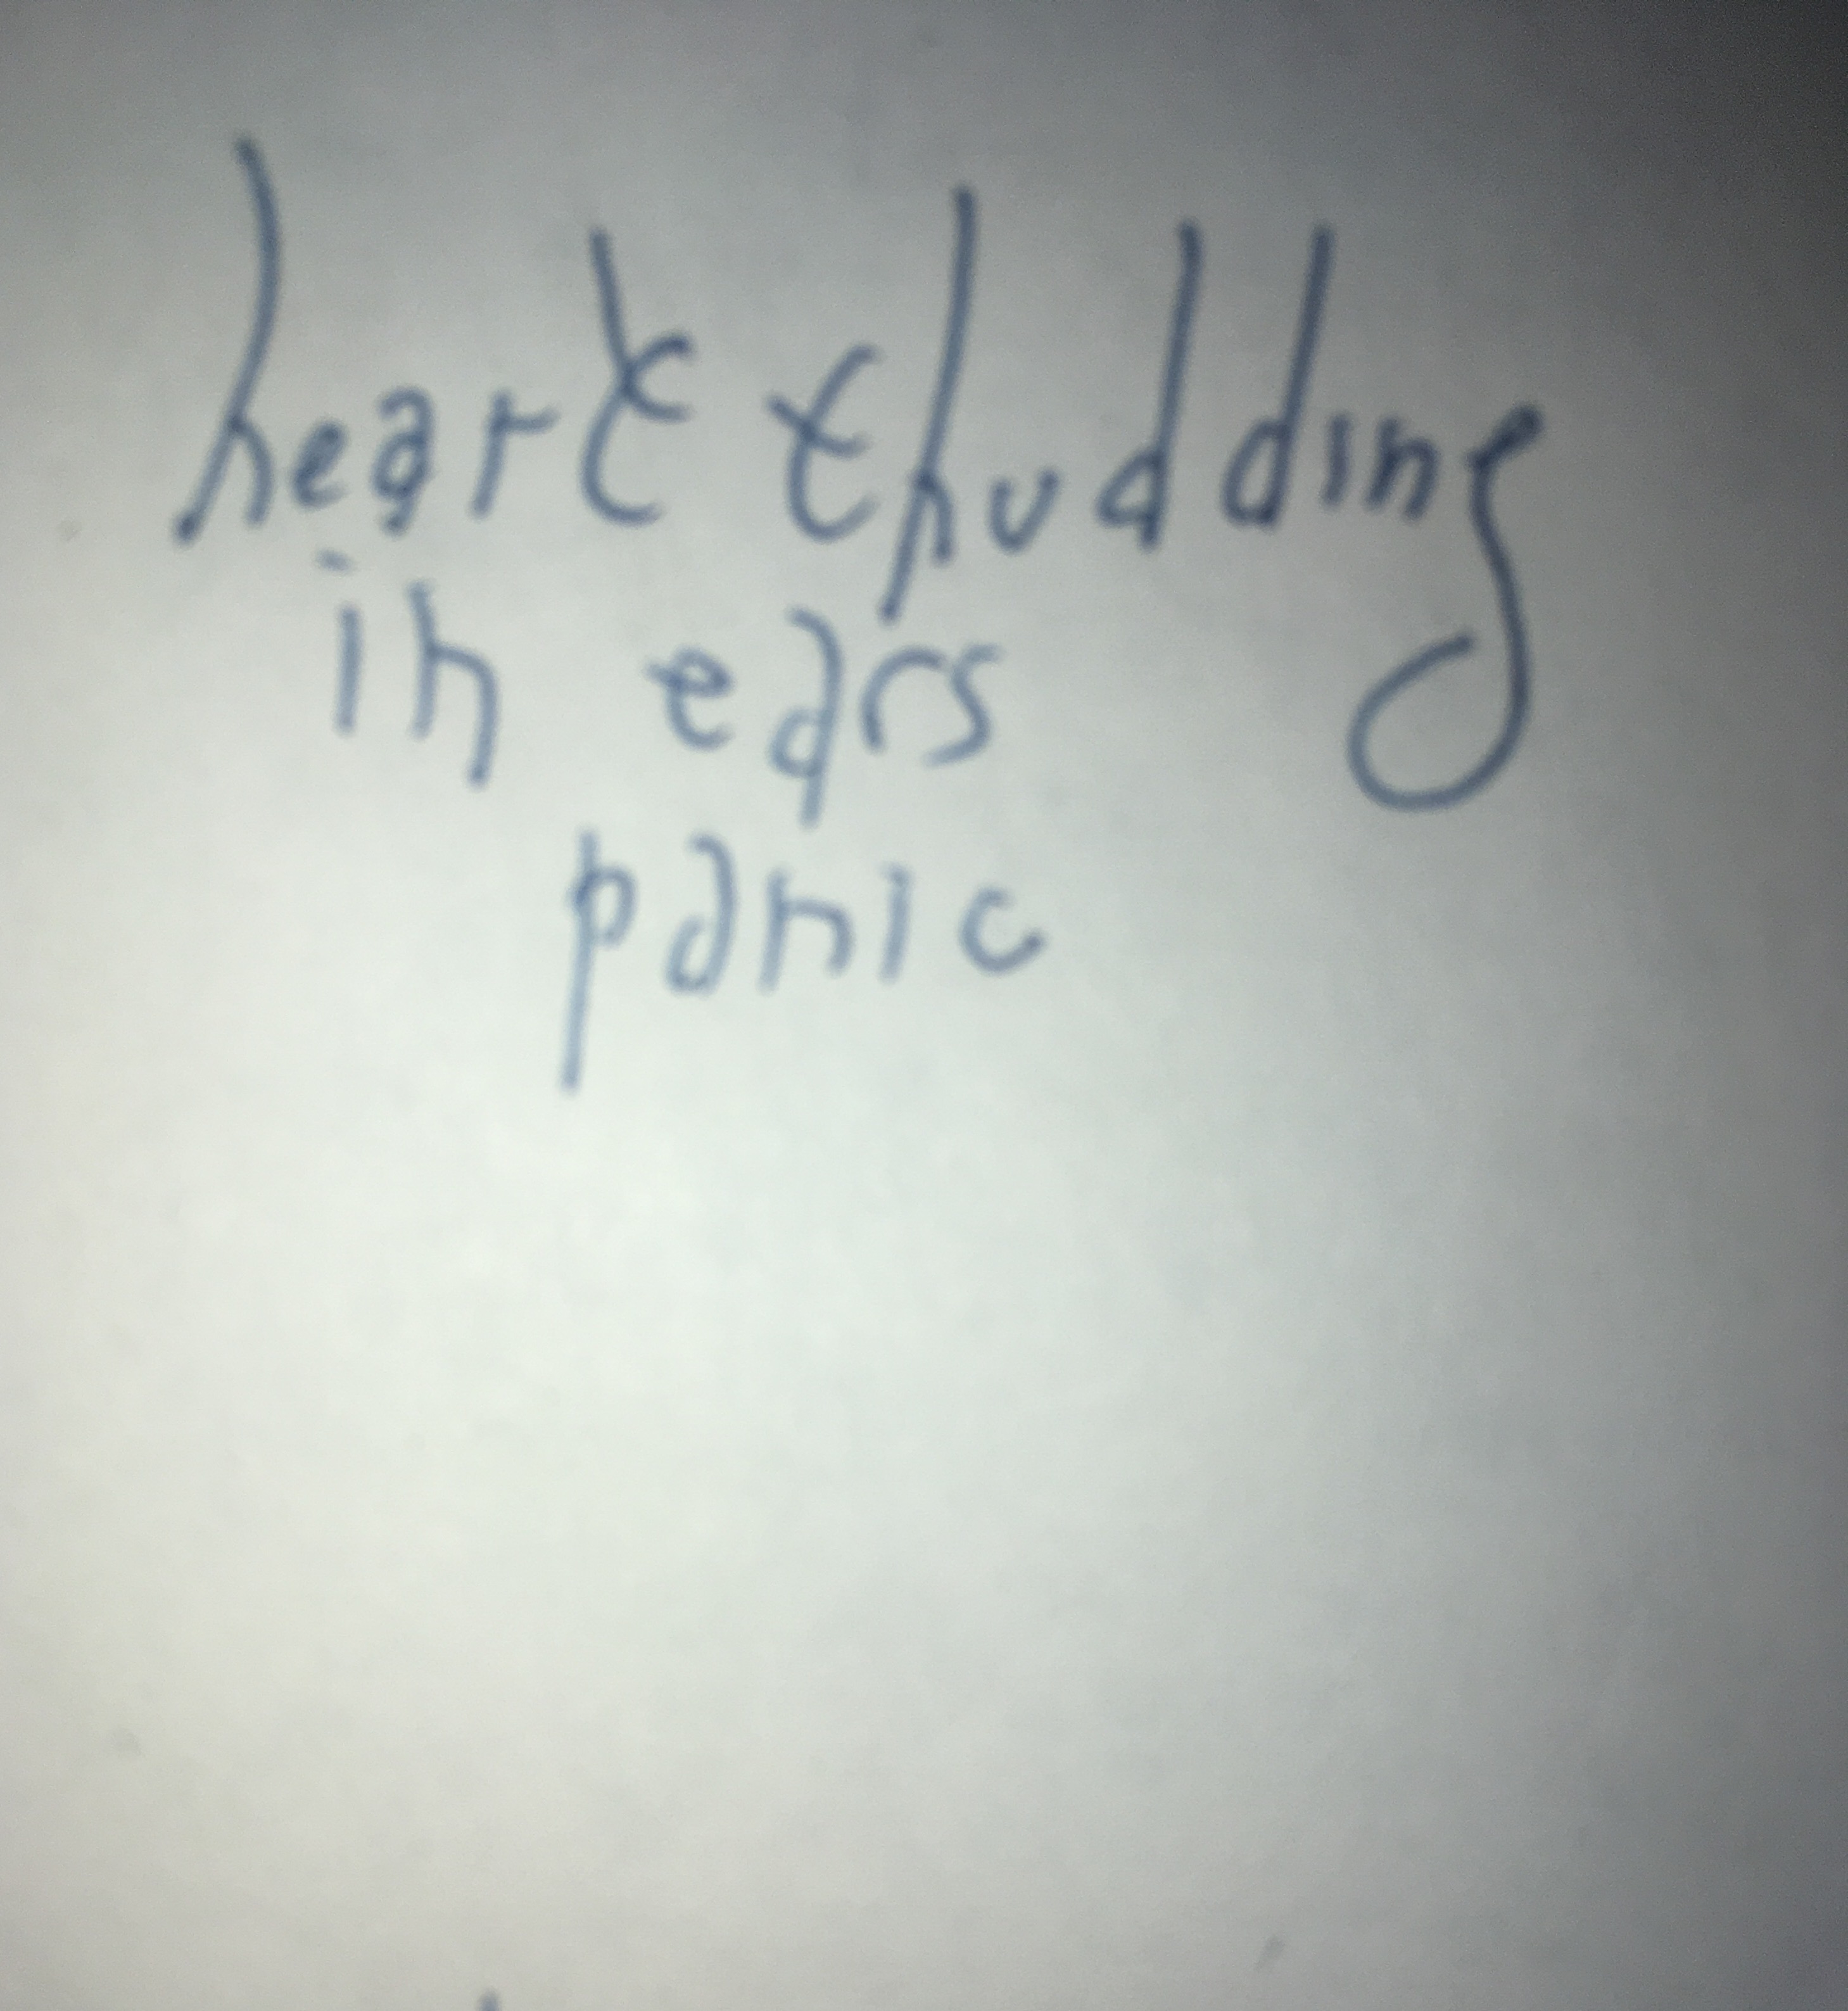 heart thudding
in ears
panic